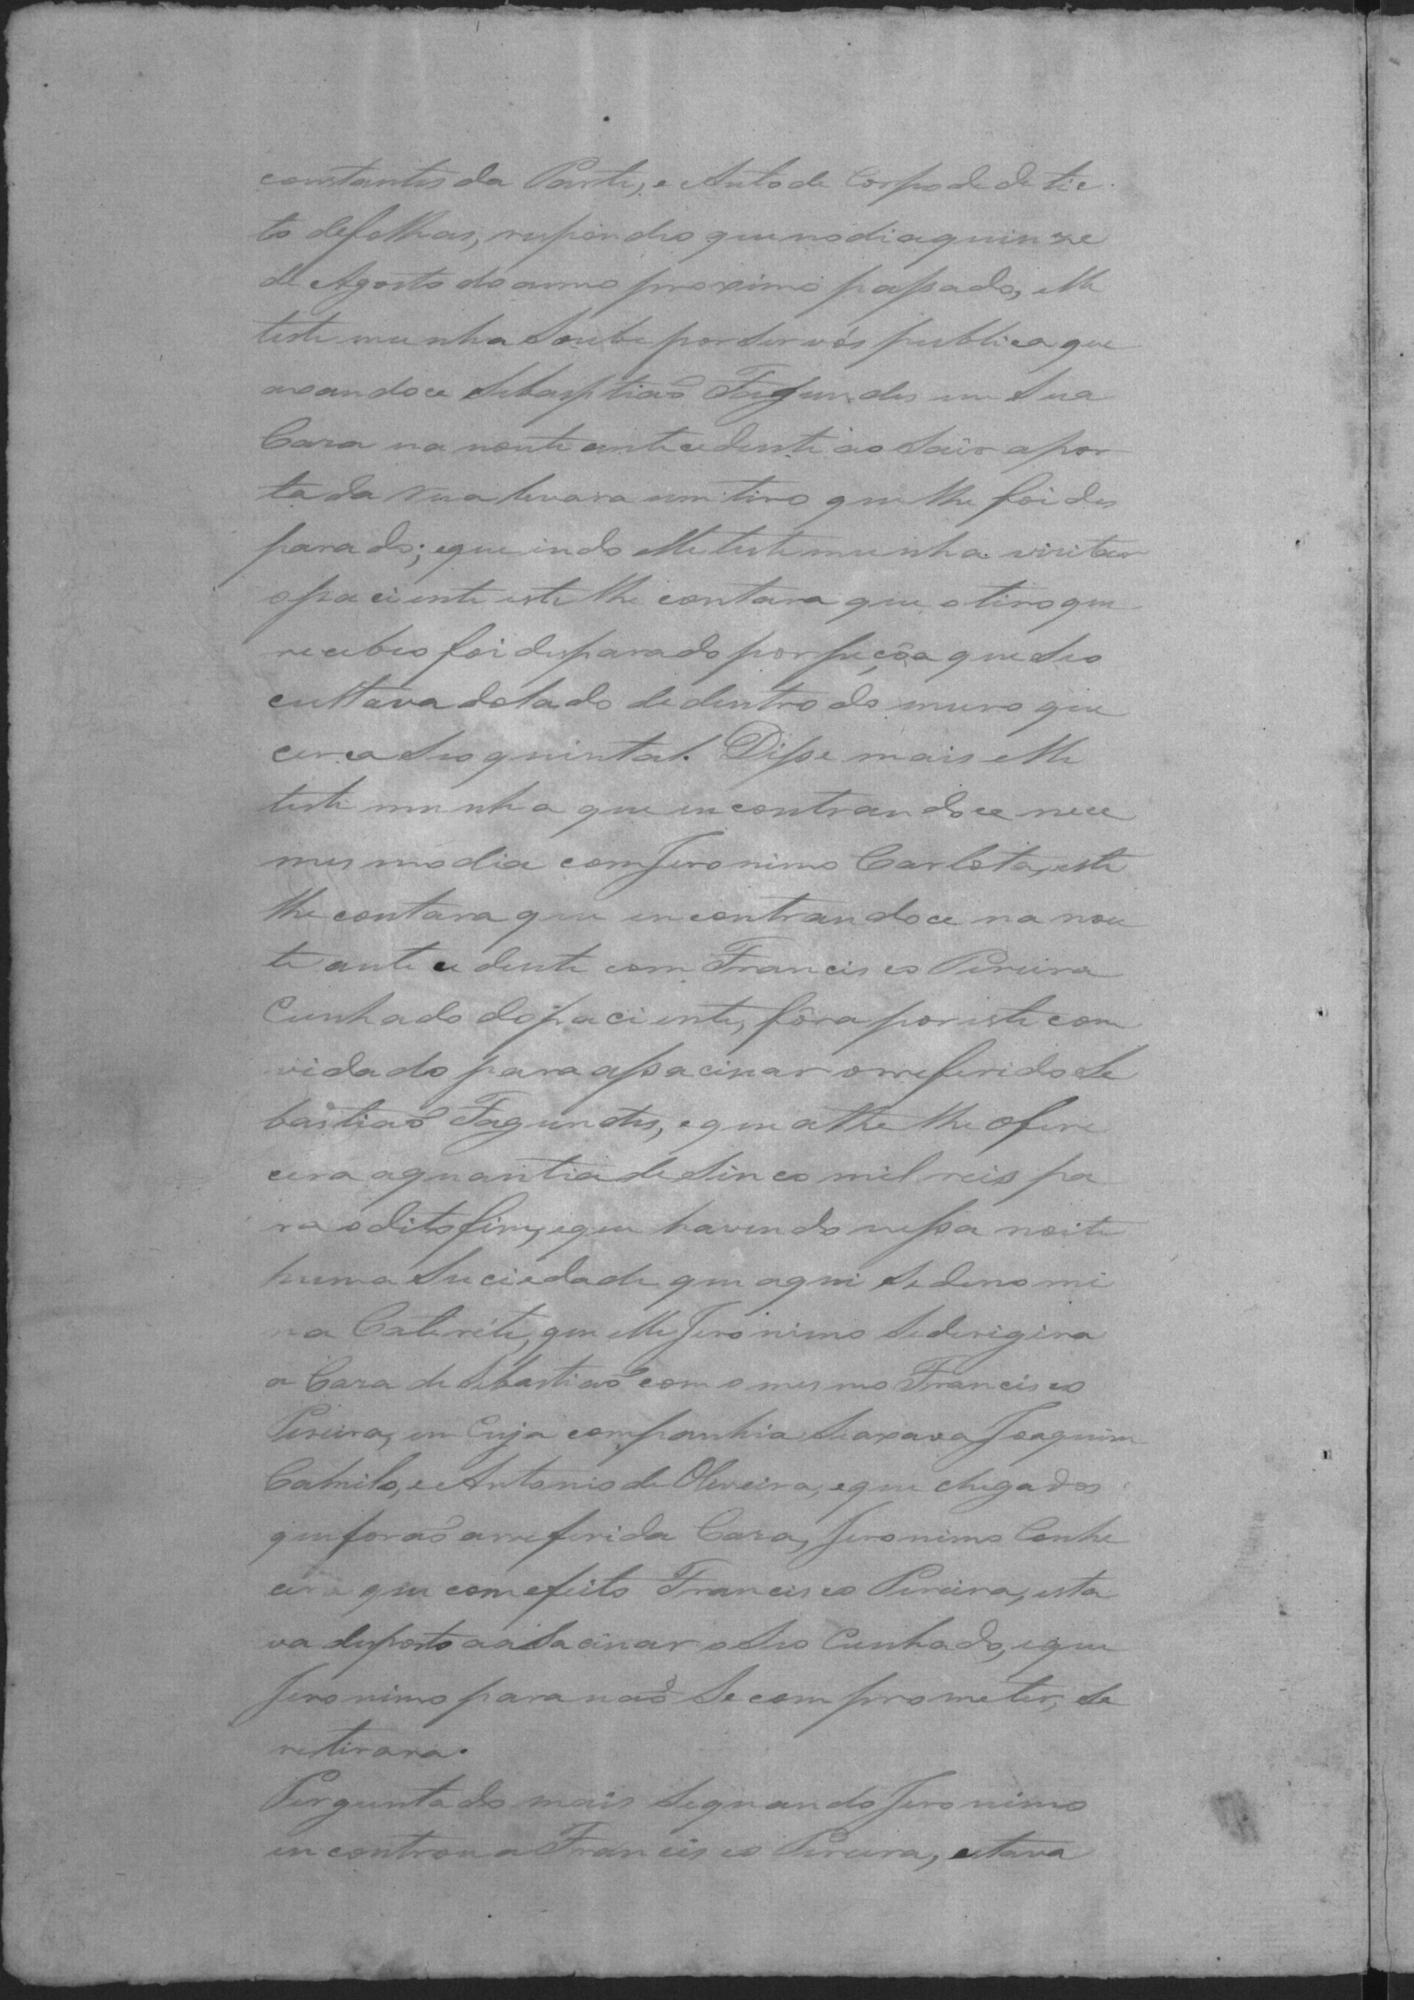 constantes da Parte, e Auto de Corpo de de lic
to de folhas, respondeo que no dia quinze
de Agosto do anno proximo passado, elle
testemunha soube por ser vós publica que
axandoce Sebasptiaõ Fagundes em Sua
Caza na noute antecedente ao sair a por
ta da rua levara um tiro que lhe foi des
parado; e que indo elle testemunha vizitar
o paciente este lhe contara que o tiro que
recebeo foi desparado por peçôa que seo
cultava do lado de dentro do muro que
cerca seo quintal. Disse mais elle
testemunha que encontrandoce nece
mesmo dia com Jeronimo Carlota, este
lhe contara que encontrandoce na nou
te antecedente com Francisco Pereira
Cunhado do paciente, fôra por este com
vidado para assacinar o rreferido Se
bastiaõ Fagundes, e que athe lhe ofere
cera a quantia de Sinco mil reis pa
ra o dito fim, e que havendo nessa noite
huma Suciedade que aqui se denomi
na Cateréte, que elle Jeronimo se derigira
a Caza de Sebastiaõ com o mesmo Francisco
Pereira, em Cuja companhia se axava Joaquim
Camilo, e Antonio de Oliveira, e que chegados
que foraõ a rreferida Caza, Jeronimo Conhe
cera que com efeito Francisco Pereira, esta
va desposto a asacinar o Seo Cunhado, e que
Jeronimo para naõ se comprometer, se
retirara.
Perguntado mais se quando Jeronimo
encontrou a Francisco Pereira, estava